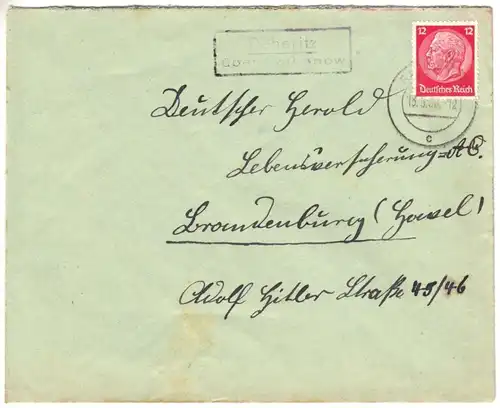 Döberitz
über Rathenow
12 12
Deutsches Reich
c
Deutscher Herold
Lebensversicherung=A.G.
Brandenburg (Havel)
Adolf Hitler Straße 45/46